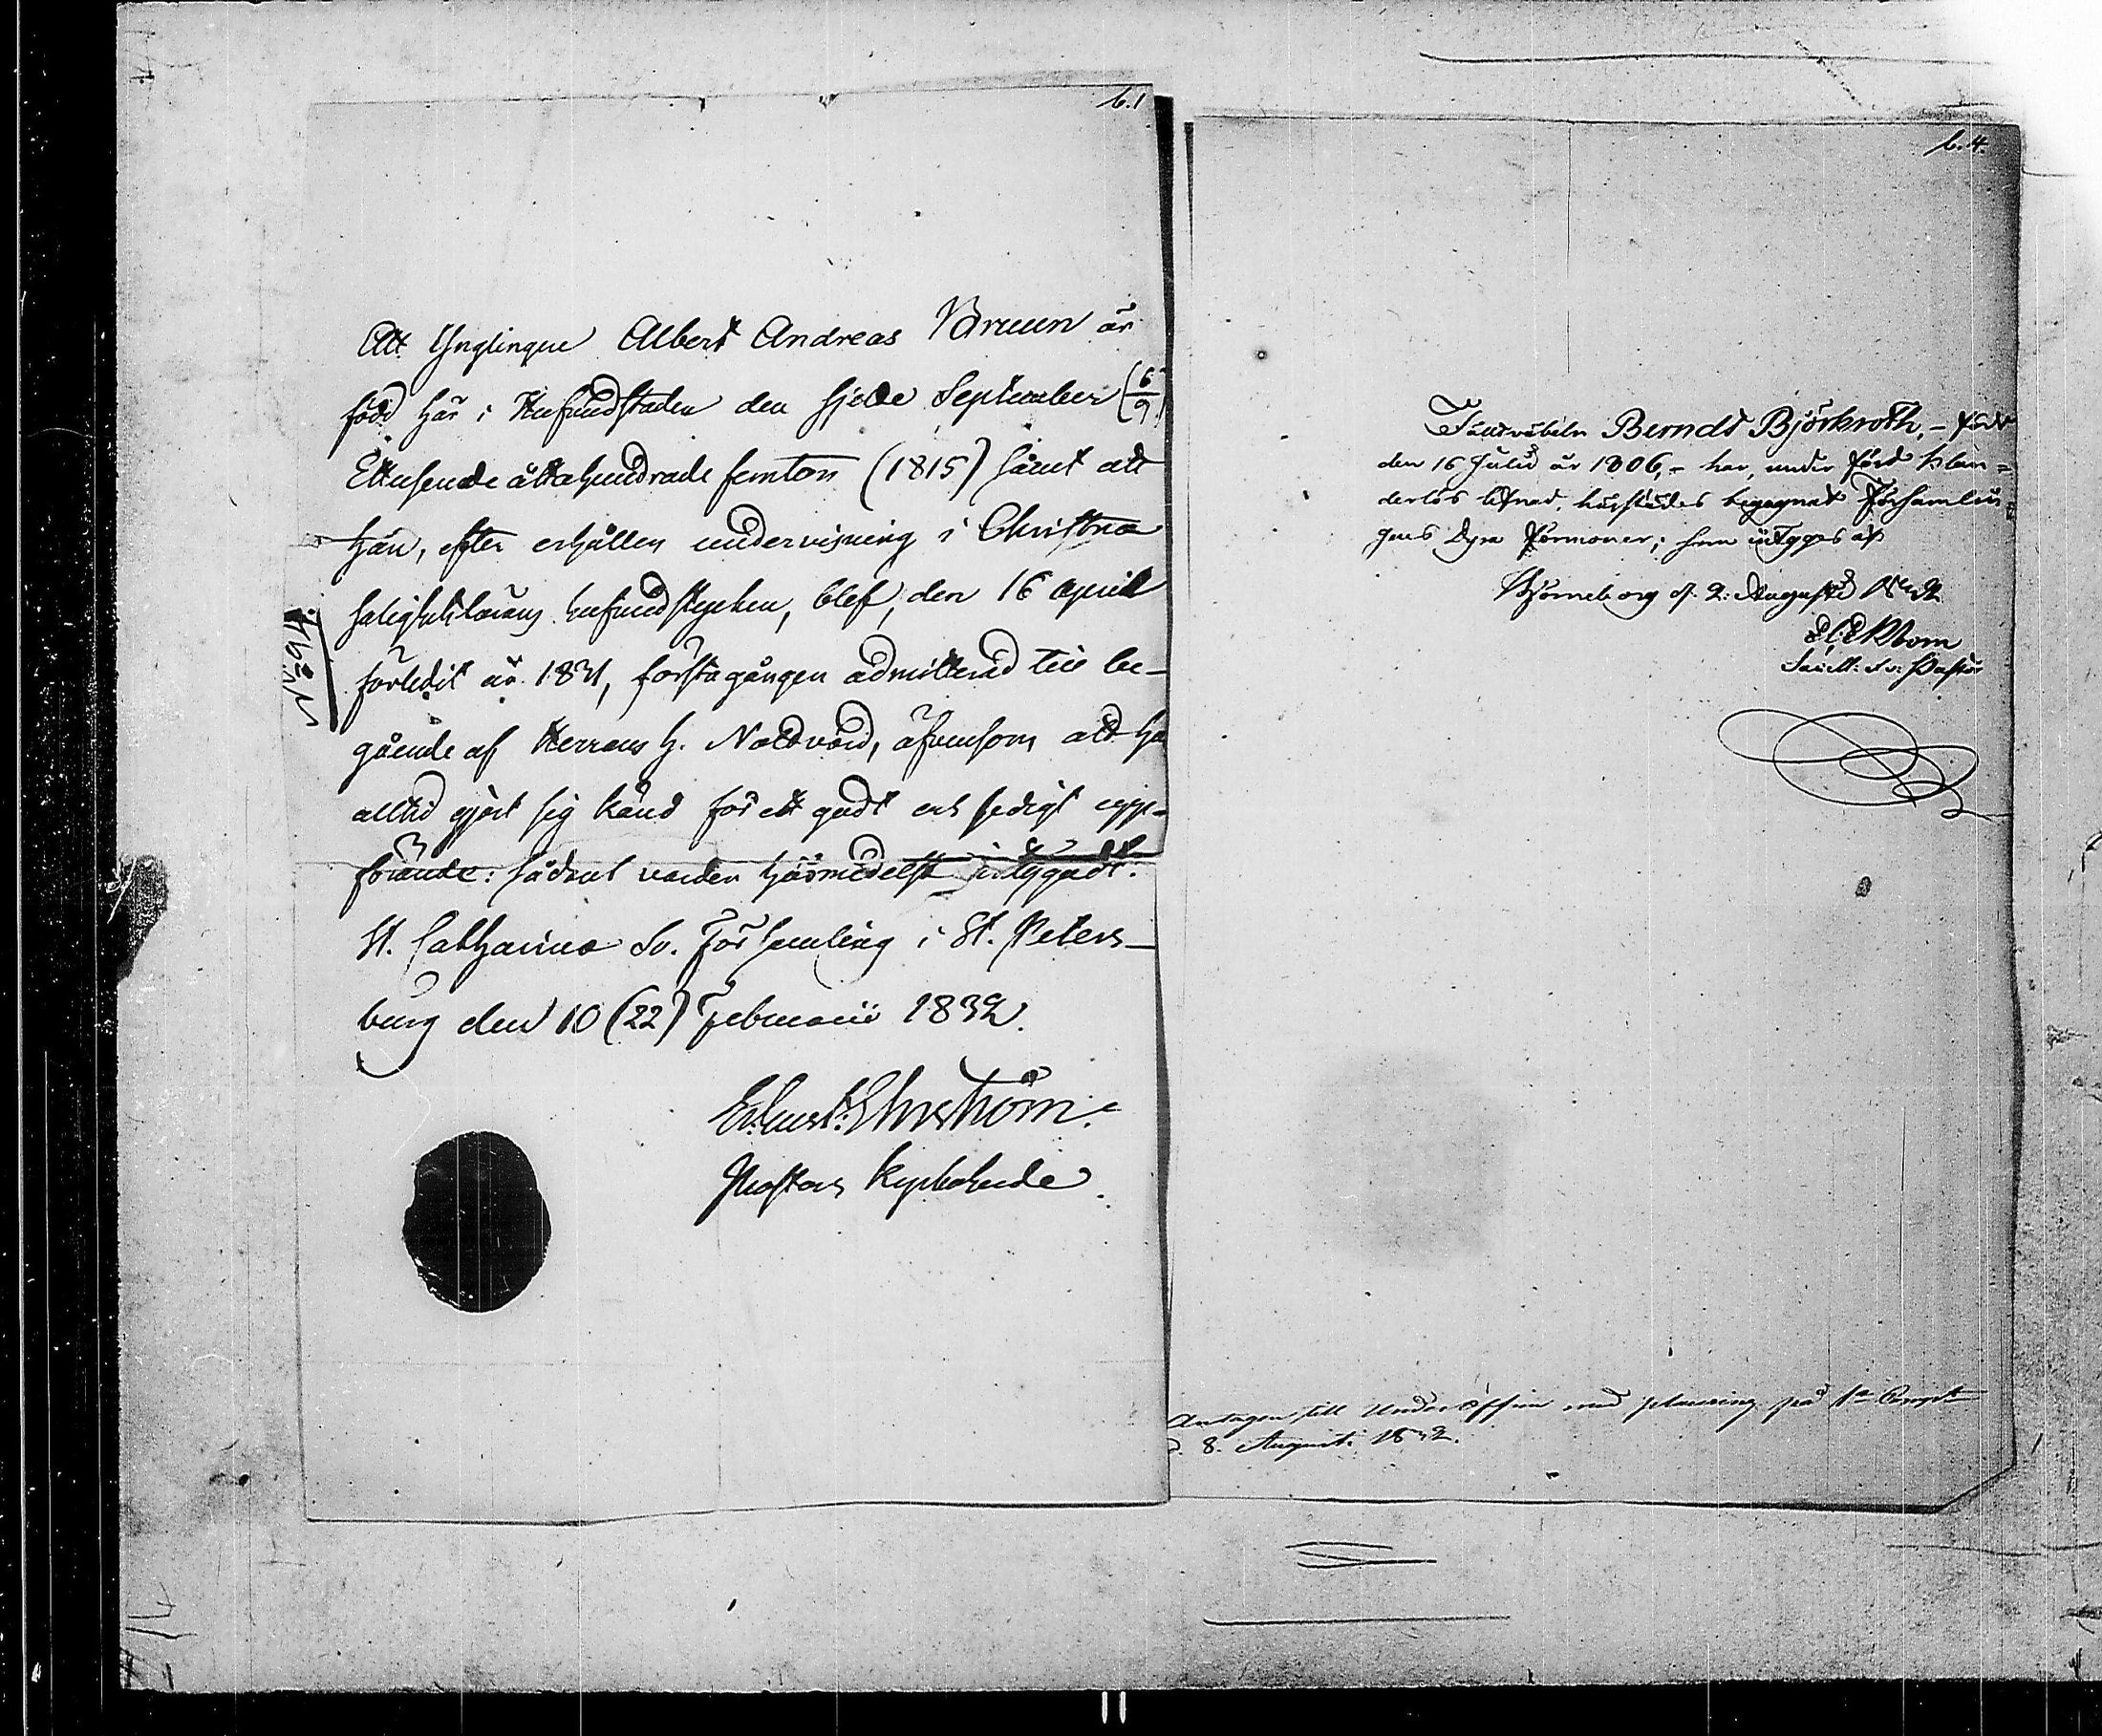 b.1
Att Ynglingen Albert Andreas Bruun är
född här i Hufvudstaden den sjette September (6/9)
Ettusende åttahundrade femton (1815) samt att
han, efter erhållen undervisning i Christna
salighetslärans hufvudstycken, blef, den 16 April
förledit år 1831, förstagången admitterad till be-
gående af Herrans H. Nattvard, äfvensom att ha
alltid gjort sig känd för ett godt och sedigt uppe-
förande: sådant varder härmedelst intygadt.
St. Catharinæ Sv. Församling i St. Peters-
burg den 10 (22) Februarii 1832.
Er. Gust. Ehrström.
Pastors Kyrkoherde.
No 94
b.4.
Berndt Björkroth, - född
den 16 Julii år 1806, - har, under förd klan=
derlös lefnad, härstädes begagnat Församlin=
gens Dyra Förmoner; som intygas af
Björneborg d. 2. Augusti 1832
Pastor
Antagen till Underofficer med placering på 1a Comp:t
d. 8. Augusti 1832.